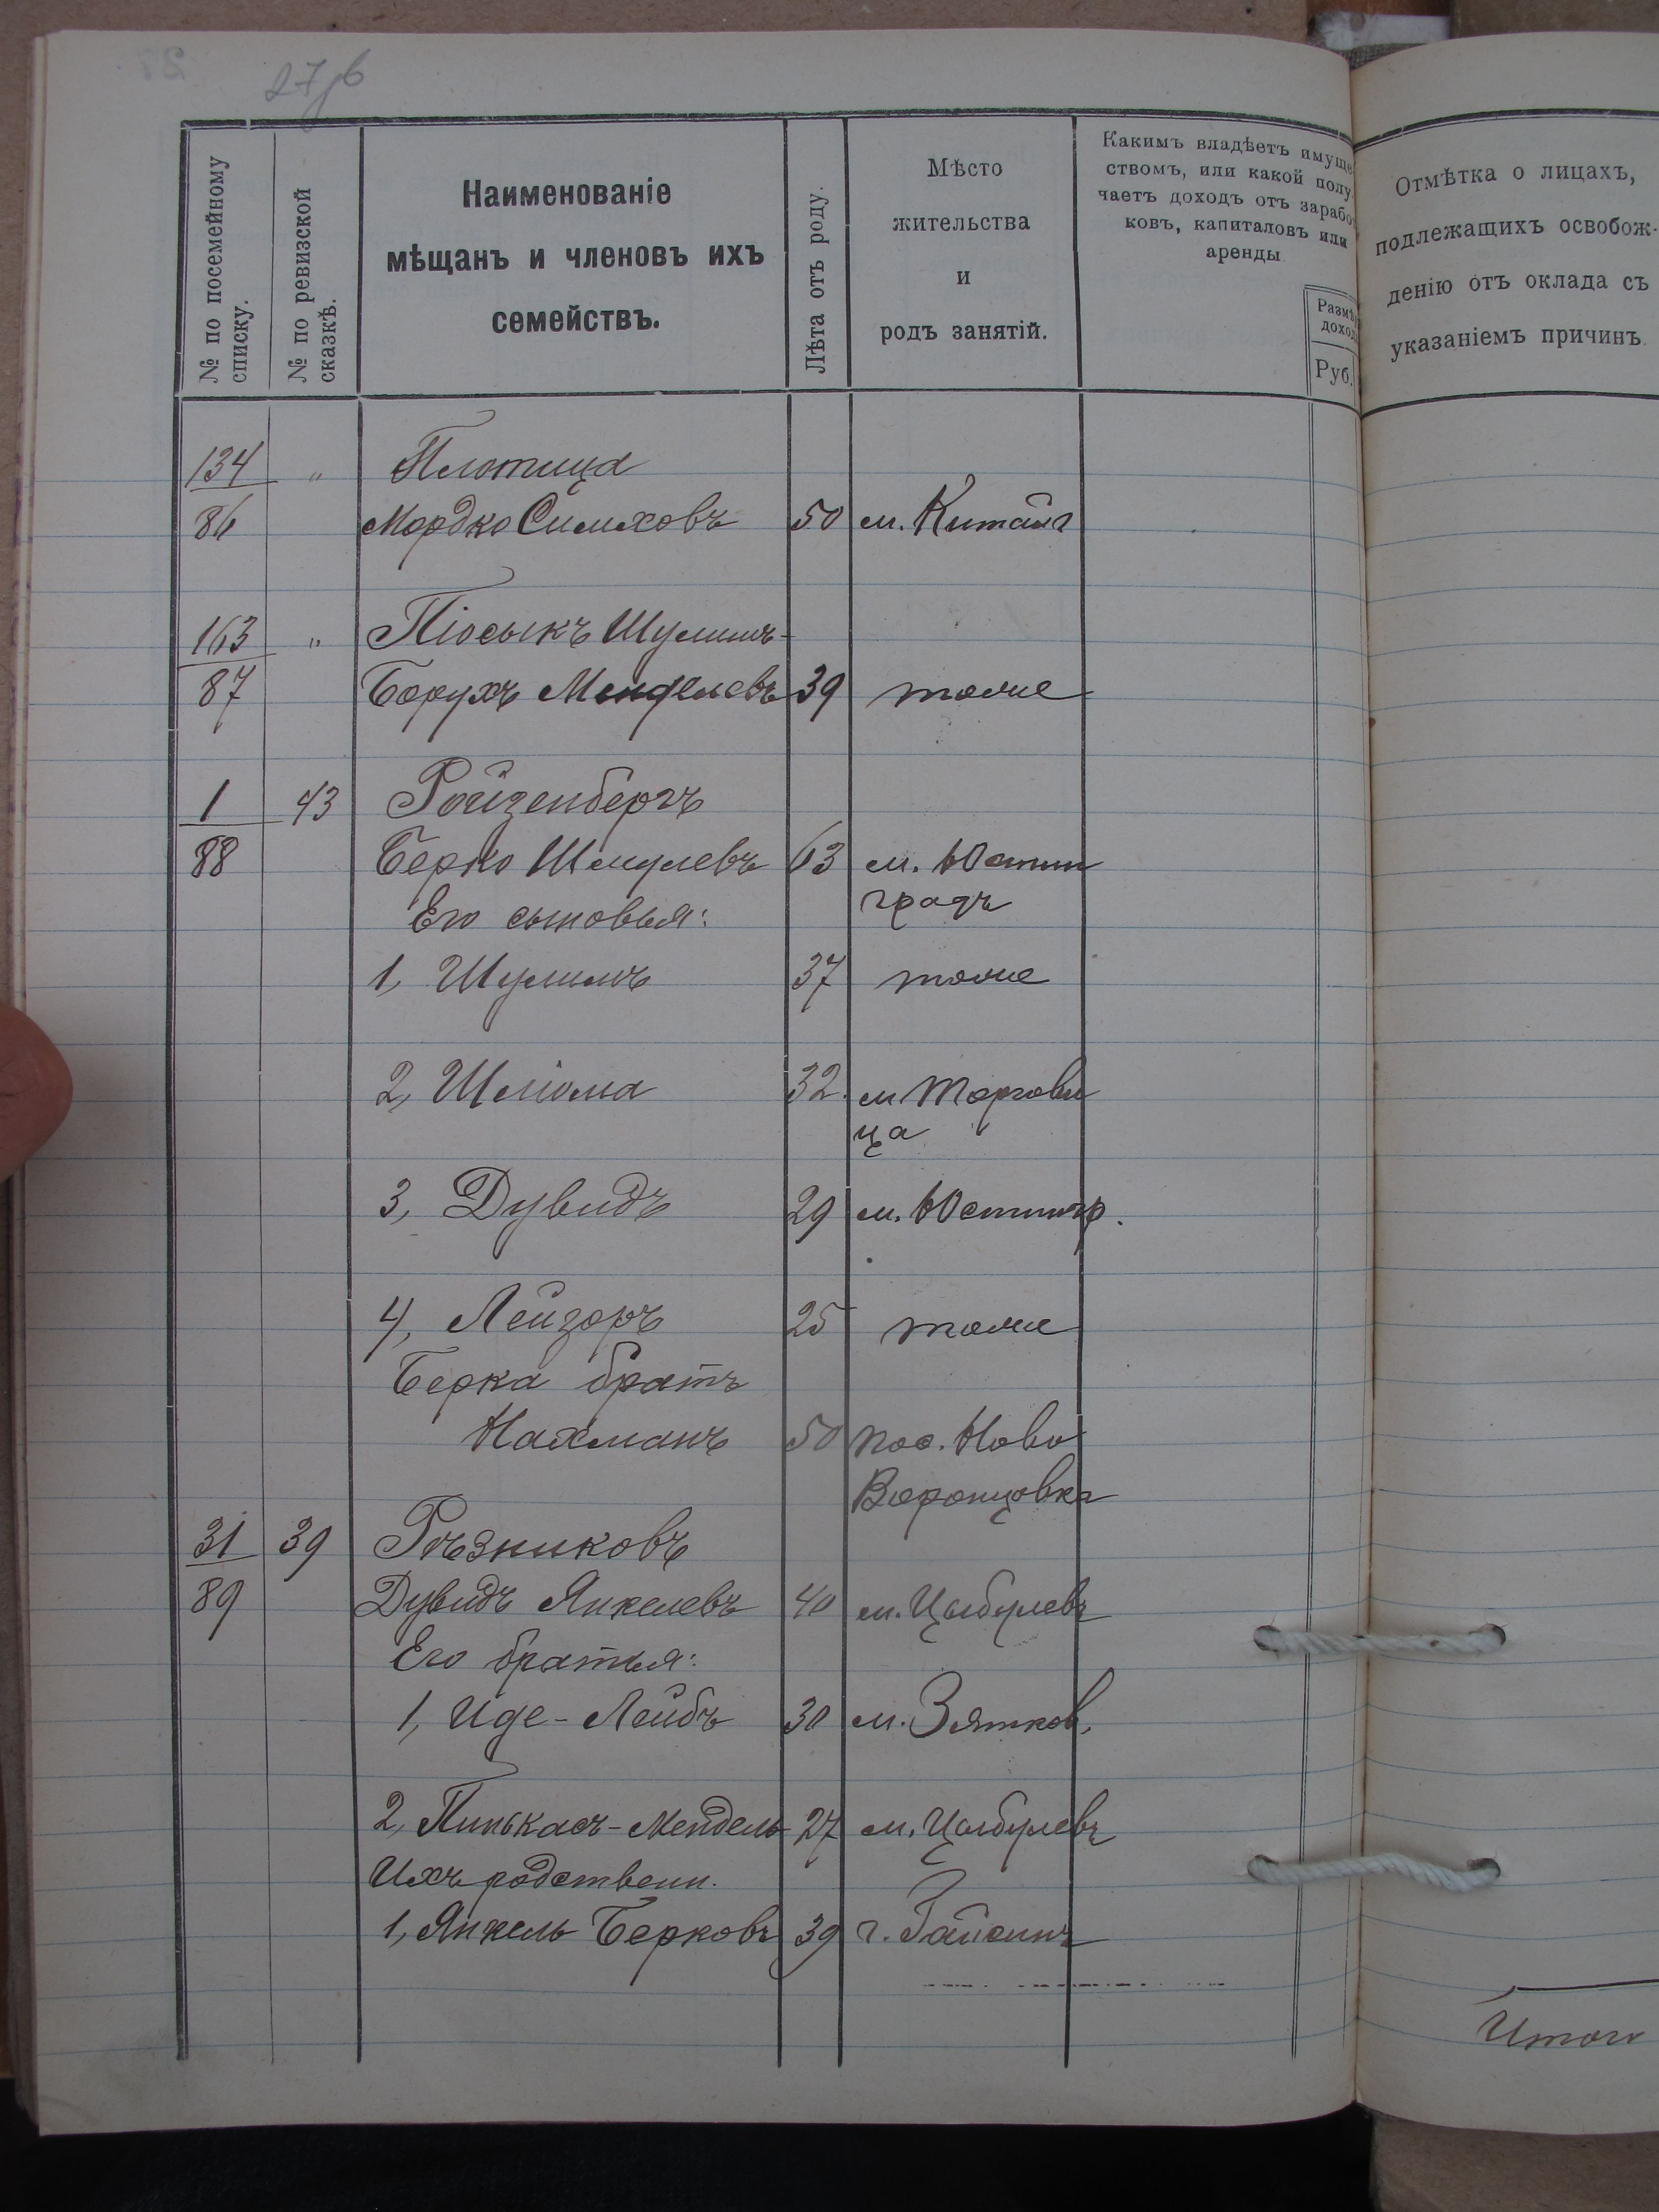 27 об
№ по посемейному списку.
№ по ревизской сказкѣ.
Наименованіе
мѣщанъ и членовъ ихъ
семействъ.
Лѣта отъ роду.
Мѣсто
жительства
и
родъ занятій.
Какимъ владѣетъ имуще
ствомъ, или какой полу
чаетъ доходъ отъ зарабо
ковъ, капиталовъ или
аренды
Размѣ
доход
Руб.
Отмѣтка о лицахъ,
подлежащихъ освобож-
денію отъ оклада съ
указаніемъ причинъ.
134 " Плотица
86 Мордко Симховъ 50 м. Китайг
163 " Піосыкъ Шулимъ-
87 Борухъ Менделевъ 39 тоже
1 43 Ройзенбергъ
88 Берко Шмулевъ 63 м. Юстин
Его сыновья: градъ
1, Шулимъ 37 тоже
2, Шліома 32. м Торгови
ца
3, Дувидъ 29 м. Юстингр.
4, Лейзоръ 25 тоже
Берка братъ
Нахманъ 50 пос. Ново
Воронцовка
31 39 Рѣзниковъ
89 Дувидъ Янкелевъ 40 м. Цыбулевъ
Его братья:
1, Иде-Лейбъ 30 м. Зятков.
2, Пинькасъ-Мендель 27 м. Цыбулевъ
Ихъ родственн.
1, Янкель Берковъ 39 г. Гайсинъ
Итого